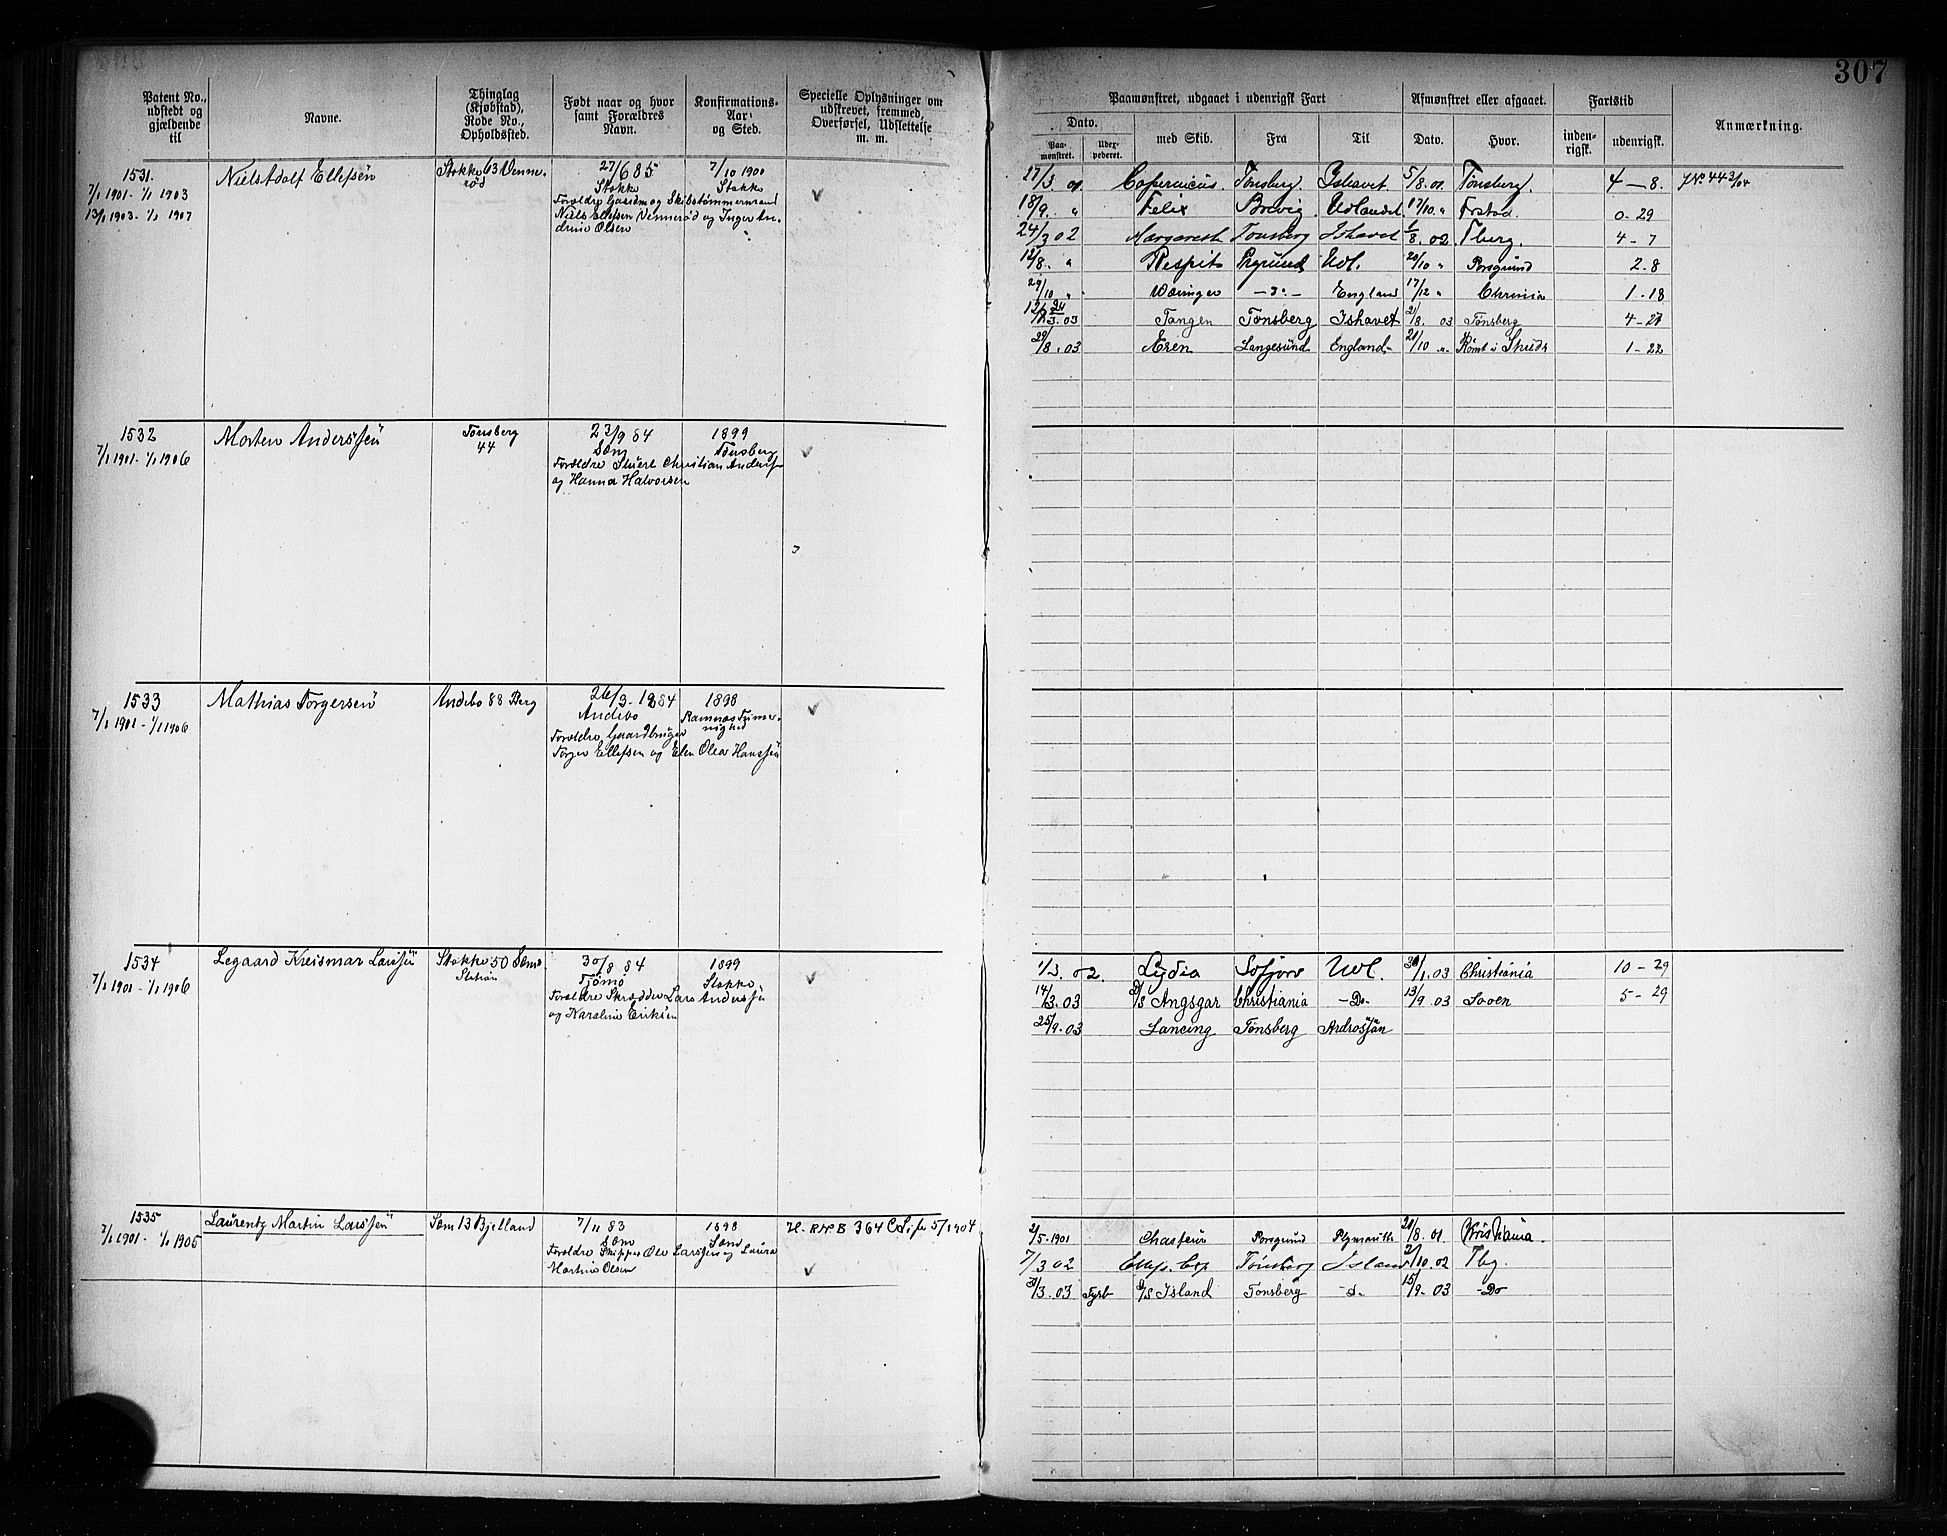 307
Patent No., udstedt og gjældende til
Navne.
Thinglag (Kjøbstad), Rode No., Opholdssted.
Født naar og hvor samt Forældres Navn.
Konfirmations-Aar og Sted.
Specielle Oplysninger om udskrevet, fremmed, Overførsel, Udslettelse m. m.
Paamønstret, udgaaet i udenrigsk Fart
Dato.
Paa-mønstret.
Uder-pederet.
med Skib.
Fra
Til
Afmønstret eller afgaaet.
Dato.
Hvor.
Fartstid
inden-rigsk.
udenrigsk.
Anmærkning.
1531.
7/1 1901 - 1/1 1903
13/1 1903 - 1/1 1907
Niels Adolf Ellefsen
Stokke 63 Venne-
rød
27/6 85
Stokke
Forældre Gaardm og Skibstømmermand
Niels Ellefsen Vennerød og Inger An-
drine Olsen
7/10 1900
Stokke
17/3 01 Copernicus Tønsberg Ishavet 5/8 01 Tønsberg. 4 - 8. J No 44 3/04
18/9 " Felix Brevig Udlandet 17/10 " Frstad 0 - 29
24/3 02 Margareth Tønsberg Ishavet 8. 02 Tberg. 4 - 7
12/8 " Respit Prgrund Udl. 20/10 " Porsgrund 2 - 8
29/10 " Væringer - do - England 17/12 " Chrnia 1 - 18
3.03 Tangen Tønsberg Ishavet 21/8 03 Tønsberg 4 - 27
29/8 03 Langesund England 21/10 " Rømt i Shields 1 - 22
1532
7/1 1901 - 1/1 1906
Morten Anderssen
Tønsberg
44
23/9 84
Sem
Forældre Stuert Christian Anders
og Hanna Halvorsen
1899
Tønsberg
1533
7/1 1901 - 1/1 1906
Mathias Torgersen
Andebo 88 Berg
26/3 - 1884
Andebo
Forældre Gaardbruger
Torger Ellefsen og Elen Olea Hanssen
1898
Ramnæs
1534
7/1 1901 - 1/1 1906
Legaard Kreismar Larssen
Stokke 50 Sems
30/8 84
Tjømø
Forældre Skrædder Lars Anderssen
og Karoline Eriksen
1899
Stokke
1/3. 02 Lydia Sofjord Udl. 30/1 03 Christiania 10 - 29
14/3. 03 D/S Angsgar Christiania - Do - 13/9 03 5 - 29
25/9. 03 Lancing Tønsberg Androssan
1535
7/1 1901 - 1/1 1905
Laurentz Martin Larssen
Sem 13 Bjelland
7/11 83
Sem
Forældre Skipper Ole Larssen og Laura
Martine Olsen
1898
Sem
H. R. No B 364
2/5 - 1901 Porsgrund Plymouth 8. 01. Kristiania.
7/3 02 Tønsberg Island 10. 02 Tbg.
3. 03 Fyrb D/S Island Tønsberg - d - 15/9 - 03 - Do